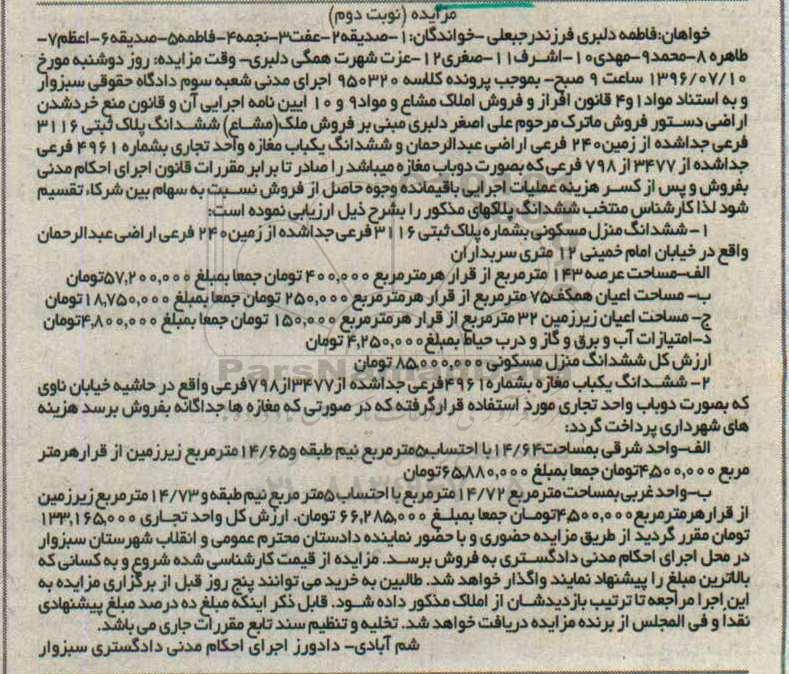 مزایده (نوبت دوم)
خواهان:فاطمه دلبری فرزندرجبعلی -خواندگان:۱-صدیقه۲-عفت۳-نجمه۴-فاطمه۵-صدیقه۶-اعظم۷-
طاهره ۸-محمد۹-مهدی۱۰-اشرف۱۱-صغری۱۲-عزت شهرت همگی دلبری- وقت مزایده: روز دوشنبه مورخ
۱۳۹۶/۰۷/۱۰ ساعت ۹ صبح- بموجب پرونده کلاسه ۹۵۰۳۲۰ اجرای مدنی شعبه سوم دادگاه حقوقی سبزوار
و به استناد مواد۱و۴ قانون افراز و فروش املاک مشاع و مواد۹ و ۱۰ ایین نامه اجرایی آن و قانون منع خردشدن
اراضی دستور فروش ماترک مرحوم علی اصغر دلبری مبنی بر فروش ملک(مشاع) ششدانگ پلاک ثبتی ۳۱۱۶
فرعی جداشده از زمین۲۴۰ فرعی اراضی عبدالرحمان و ششدانگ یکباب مغازه واحد تجاری بشماره ۴۹۶۱ فرعی
جداشده از۳۴۷۷ از ۷۹۸ فرعی که بصورت دوباب مغازه میباشد را صادر تا برابر مقررات قانون اجرای احکام مدنی
بفروش و پس از کسر هزینه عملیات اجرایی باقیمانده وجوه حاصل از فروش نسبت به سهام بین شرکاء تقسیم
شود لذا کارشناس منتخب ششدانگ پلاکهای مذکور را بشرح ذیل ارزیابی نموده است:
۱- ششدانگ منزل مسکونی بشماره پلاک ثبتی ۳۱۱۶فرعی جداشده از زمین۲۴۰ فرعی اراضی عبدالرحمان
واقع در خیابان امام خمینی ۱۲ متری سربداران
الف-مساحت عرصه ۱۴۳ مترمربع از قرار هرمترمربع ۴۰۰,۰۰۰ تومان جمعا بمبلغ ۵۷,۲۰۰,۰۰۰تومان
ب- مساحت اعیان همکف۷۵ مترمربع از قرار هرمترمربع ۲۵۰,۰۰۰ تومان جمعا بمبلغ ۱۸,۷۵۰,۰۰۰تومان
ج- مساحت اعیان زیرزمین ۳۲ مترمربع از قرار هرمترمربع ۱۵۰,۰۰۰ تومان جمعا بمبلغ ۴,۸۰۰,۰۰۰تومان
د-امتیازات آب و برق و گاز و درب حیاط بمبلغ ۴,۲۵۰,۰۰۰ تومان
ارزش کل ششدانگ منزل مسکونی ۸۵,۰۰۰,۰۰۰ تومان
۲- ششدانگ یکباب مغازه بشماره۴۹۶۱فرعی جداشده از۳۴۷۷از۷۹۸فرعی واقع در حاشیه خیابان ناوی
که بصورت دوباب واحد تجاری مورد استفاده قرارگرفته که در صورتی که مغازه ها جداگانه بفروش برسد هزینه
های شهرداری پرداخت گردد:
الف-واحد شرقی بمساحت۱۴/۶۴ با احتساب۵مترمربع نیم طبقه و۱۴/۶۵مترمربع زیرزمین از قرارهرمتر
مربع ۴,۵۰۰,۰۰۰تومان جمعا بمبلغ ۶۵,۸۸۰,۰۰۰تومان
ب-واحدغربی بمساحت مترمربع ۱۴/۷۲ مترمربع با احتساب ۵متر مربع نیم طبقه و ۱۴/۷۳ مترمربع زیرزمین
از قرارهرمترمربع۴,۵۰۰,۰۰۰تومان جمعا بمبلغ ۶۶,۲۸۵,۰۰۰ تومان. ارزش کل واحد تجاری ۱۳۳,۱۶۵,۰۰۰
تومان مقرر گردید از طریق مزایده حضوری و با حضور نماینده دادستان محترم عمومی و انقلاب شهرستان سبزوار
در محل اجرای احکام مدنی دادگستری به فروش برسد. مزایده از قیمت کارشناسی شده شروع و به کسانی که
بالاترین مبلغ را پیشنهاد نمایند واگذار خواهد شد. طالبین به خرید می توانند پنج روز قبل از برگزاری مزایده به
این اجرا مراجعه تا ترتیب بازدیدشان از املاک مذکور داده شود. قابل ذکر اینکه مبلغ ده درصد مبلغ پیشنهادی
نقدا و فی المجلس از برنده مزایده دریافت خواهد شد. تخلیه و تنظیم سند تابع مقررات جاری می باشد.
شم آبادی- دادورز اجرای احکام مدنی دادگستری سبزوار